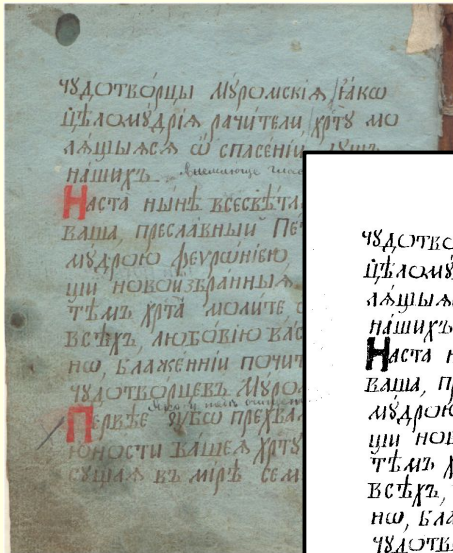 чꙋдотво́рцы мꙋ́ромскїѧ ꙗ́кѡ
цѣломꙋ́дрїѧ рачи́тели хрт҇ꙋ мо
лѧ́щыѧсѧ ѡ҆ спасе́нїи дꙋшъ
на́шихъ.
Наста ны́нѣ всесвѣ́та
ва́ша, пресла́вный Пе
мꙋ́дрою феѵрѡ́нїею,
цїи новоизбра́нныѧ
тѣ́мъ хрт҇а̀ моли́те
всѣ́хъ, любо́вїю ва́с
нѡ, блаже́ннїи почит
чꙋдотво́рцевъ. Мꙋ́ро
Пе́рвѣе ꙋ҆́бѡ прехва
ю҆́ности ва́шеѧ хрт҇ꙋ
сꙋ́щаѧ въ мі́рѣ сем
чꙋдотво
цѣломꙋ́
лѧ́щыѧ
на́шихъ
Наста н
ва́ша, п
мꙋ́дрою
цїи нов
тѣ́мъ х
всѣ́хъ,
нѡ, бла
чꙋдотв